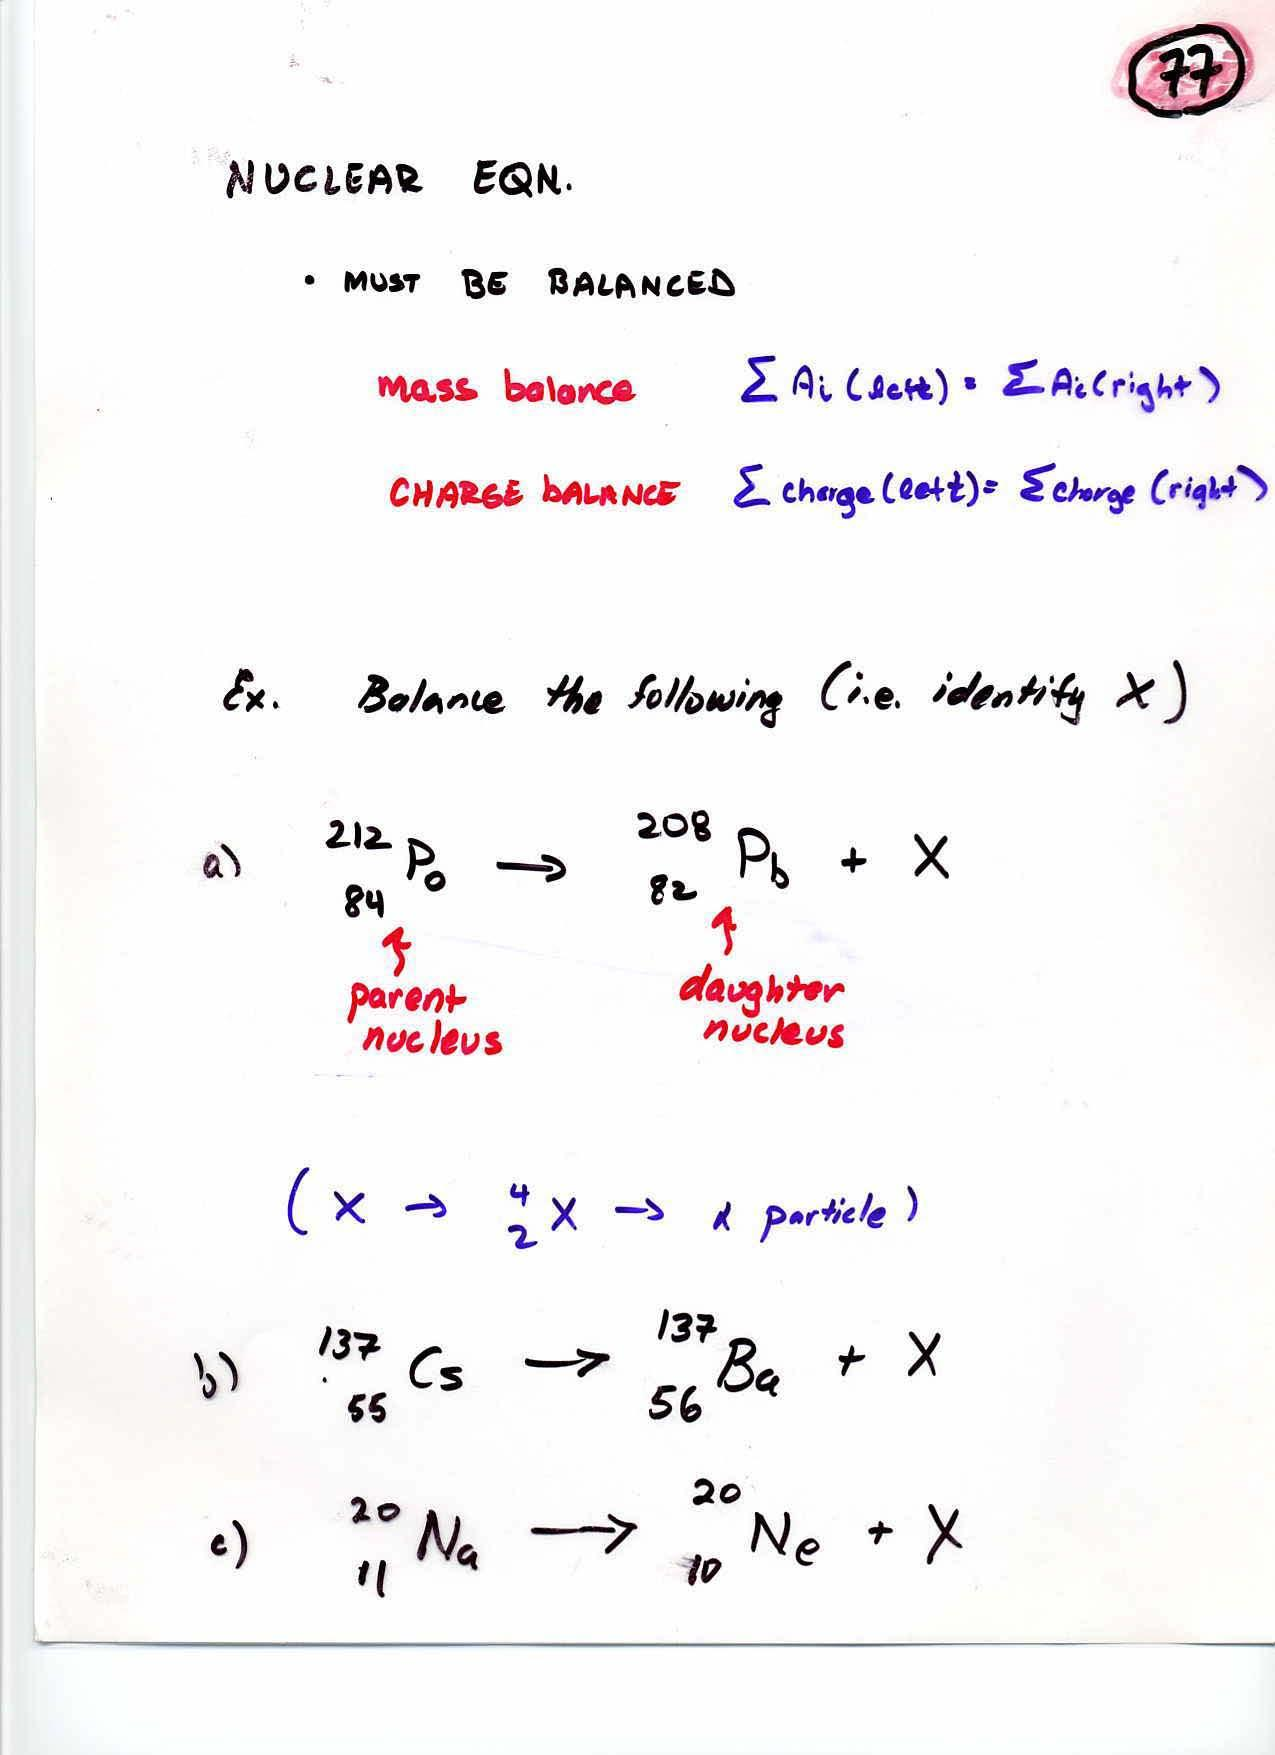 77
NUCLEAR EQN.
• MUST BE BALANCED
mass balance Σ Ai (left) = Σ Ai (right)
CHARGE BALANCE Σ charge (left) = Σ charge (right)
Ex. Balance the following (i.e. identify X)
a) ²¹²₈₄Po → ²⁰⁸₈₂Pb + X
↑ parent nucleus ↑ daughter nucleus
(X → ⁴₂X → α particle)
b) ¹³⁷₅₅Cs → ¹³⁷₅₆Ba + X
c) ²⁰₁₁Na → ²⁰₁₀Ne + X